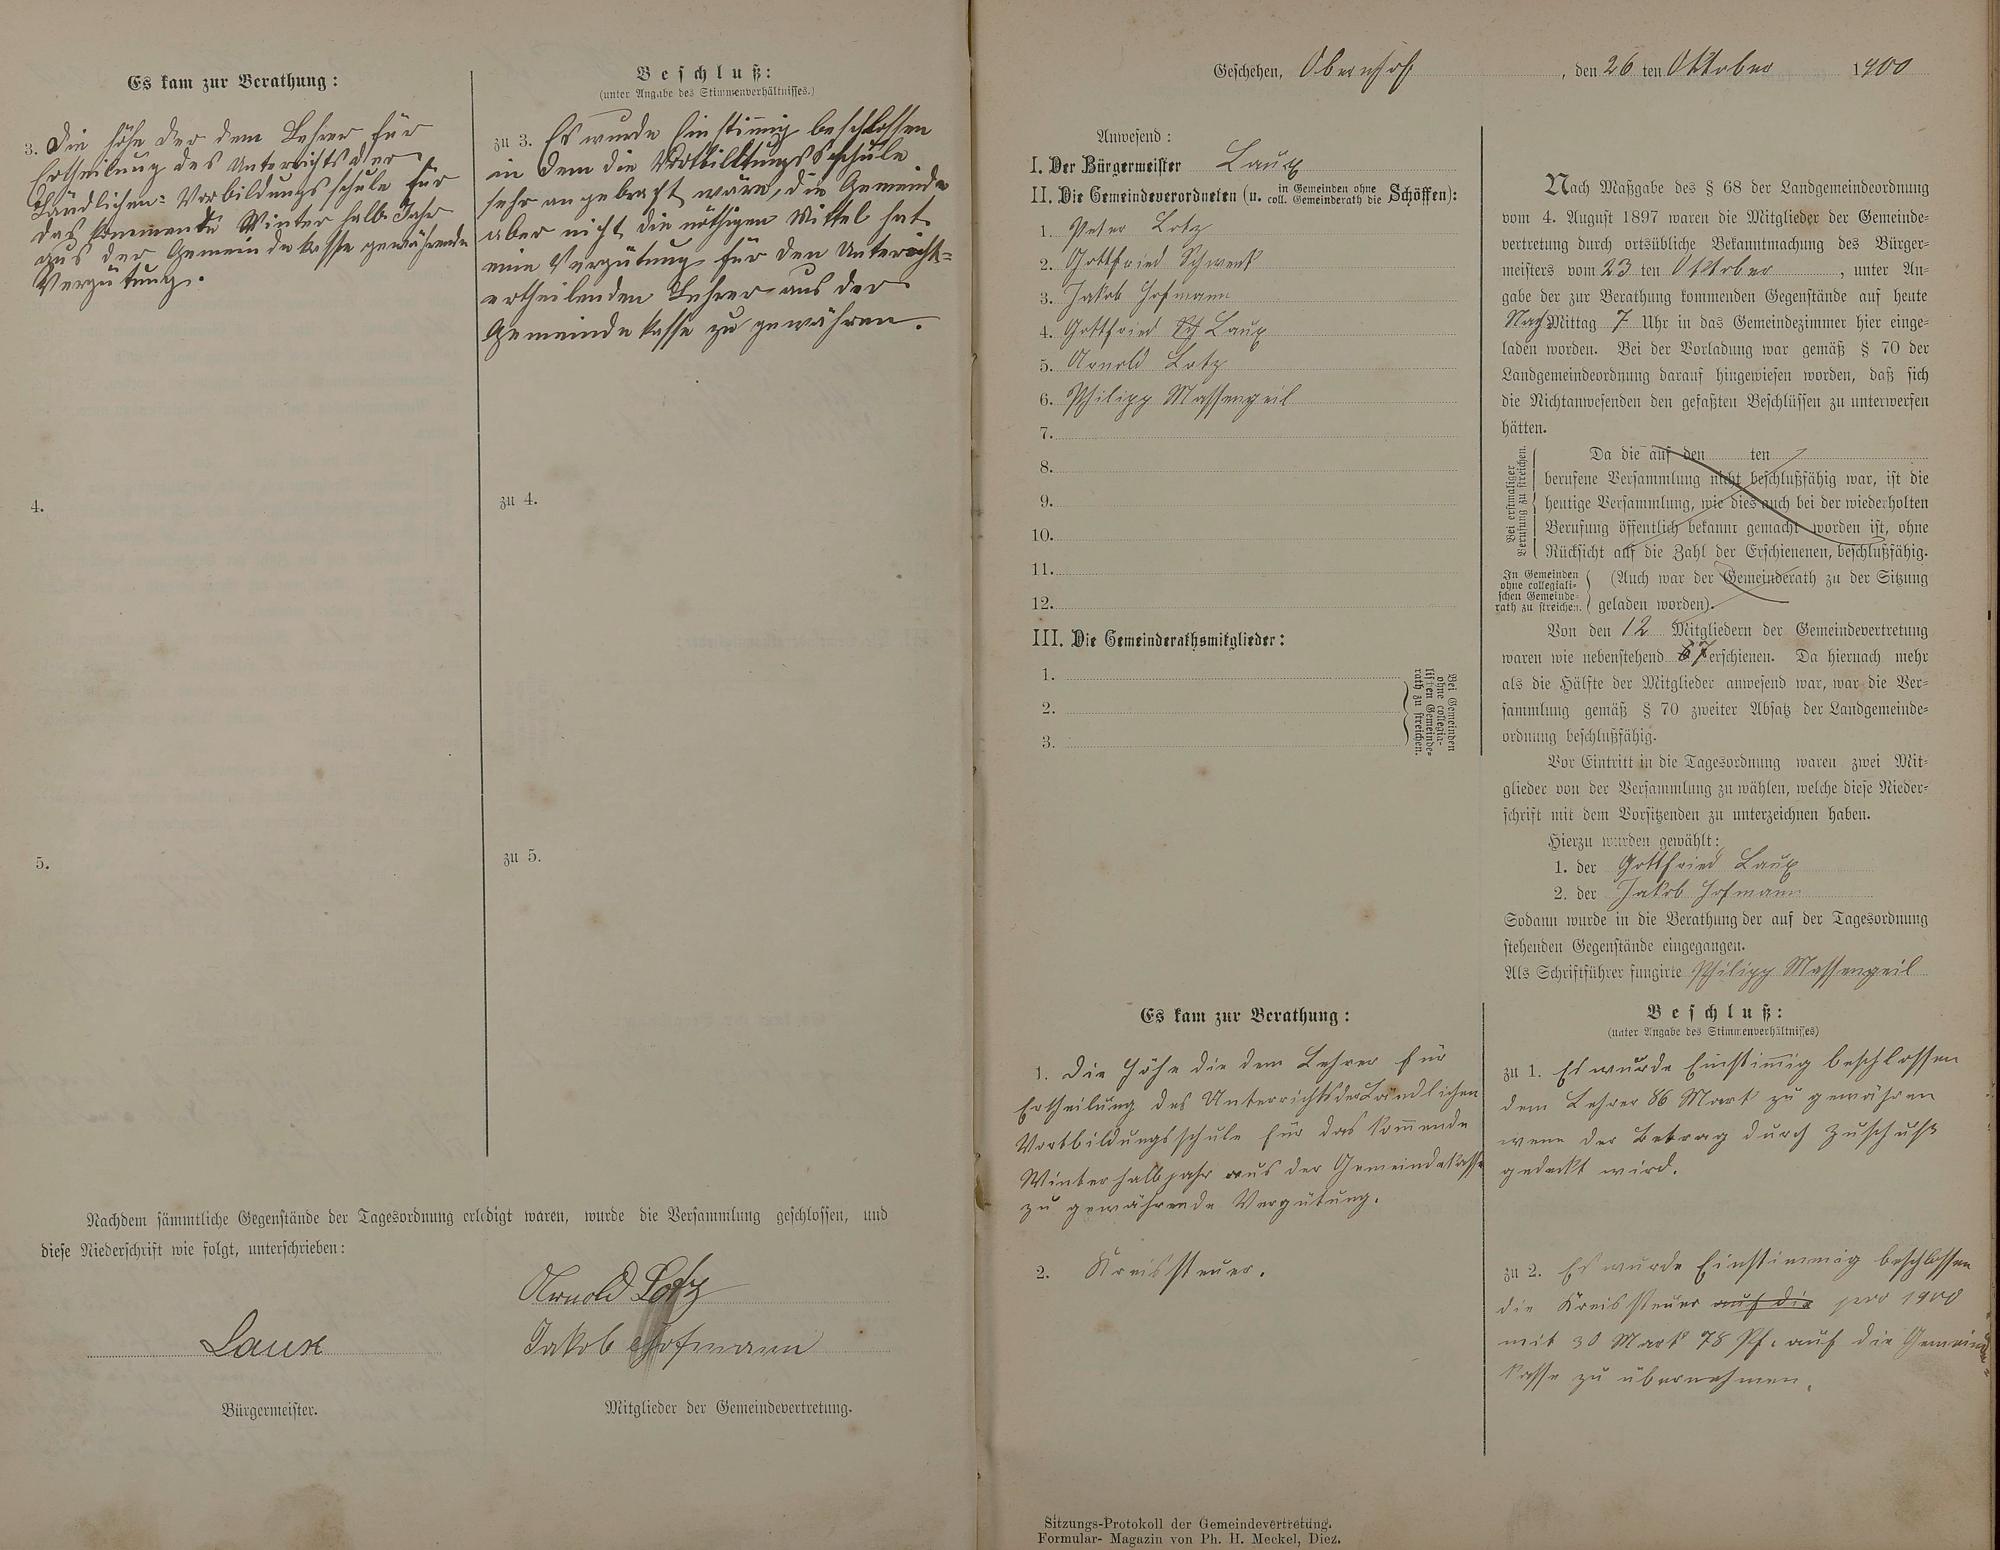 Es kam zur Berathung:
3. Die Höhe der dem Lehrer für
Ertheilung des Unterrichts der
Ländlichen-Vorbildungsschule für
das kommende Winter halb Jahr
aus der Gemeindekasse gewährende
Vergütung.
4.
5.
Beschluß:
(unter Angabe des Stimmenverhältnisses.)
zu 3. Es wurde Einstimmig beschlossen
in dem die Vortbilltungsschule
sehr angebracht wäre, die Gemeinde
aber nicht die nöthigen Mittel hat
eine Vergütung für den Unterricht-
ertheilenden Lehrer aus der
Gemeindekasse zu gewähren.
zu 4.
zu 5.
Nachdem sämmtliche Gegenstände der Tagesordnung erledigt waren, wurde die Versammlung geschlossen, und
diese Niederschrift wie folgt, unterschrieben:
Arnold Lotz
Laux
Jakob Hofmann
Bürgermeister.
Mitglieder der Gemeindevertretung.
Geschehen, Obernhof, den 26 ten Oktober 1900
Anwesend:
I. Der Bürgermeister Laux
II. Die Gemeindeverordneten (u. in Gemeinden ohne coll. Gemeinderath die Schöffen):
1. Peter Lotz
2. Gottfried Schwenk
3. Jakob Hofmann
4. Gottfried Laux
5. Arnold Lotz
6. Philipp Massengeil
7.
8.
9.
10.
11.
12.
III. Die Gemeinderathsmitglieder:
1.
2.
3.
Bei Gemeinden
ohne collegia-
lischen Gemeinde-
rath zu streichen.
Nach Maßgabe des § 68 der Landgemeindeordnung
vom 4. August 1897 waren die Mitglieder der Gemeinde-
vertretung durch ortsübliche Bekanntmachung des Bürger-
meisters vom 23 ten Oktober, unter An-
gabe der zur Berathung kommenden Gegenstände auf heute
Nach Mittag 7 Uhr in das Gemeindezimmer hier einge-
laden worden. Bei der Vorladung war gemäß § 70 der
Landgemeindeordnung darauf hingewiesen worden, daß sich
die Nichtanwesenden den gefaßten Beschlüssen zu unterwerfen
hätten.
Bei erstmaliger
Berufung zu streichen.
Da die auf den ten
berufene Versammlung nicht beschlußfähig war, ist die
heutige Versammlung, wie dies auch bei der wiederholten
Berufung öffentlich bekannt gemacht worden ist, ohne
Rücksicht auf die Zahl der Erschienenen, beschlußfähig.
In Gemeinden
ohne collegiali-
schen Gemeinde-
rath zu streichen.
(Auch war der Gemeinderath zu der Sitzung
geladen worden).
Von den 12 Mitgliedern der Gemeindevertretung
waren wie nebenstehend 7 erschienen. Da hiernach mehr
als die Hälfte der Mitglieder anwesend war, war die Ver-
sammlung gemäß § 70 zweiter Absatz der Landgemeinde-
ordnung beschlußfähig.
Vor Eintritt in die Tagesordnung waren zwei Mit-
glieder von der Versammlung zu wählen, welche diese Nieder-
schrift mit dem Vorsitzenden zu unterzeichnen haben.
Hierzu wurden gewählt:
1. der Gottfried Laux
2. der Jakob Hofmann
Sodann wurde in die Berathung der auf der Tagesordnung
stehenden Gegenstände eingegangen.
Als Schriftführer fungirte Philipp Massengeil
Es kam zur Berathung:
1. Die Höhe die dem Lehrer für
Ertheilung des Unterrichts der Ländlichen
Vortbildungsschule für das kommende
Winterhalbjahr aus der Gemeindekasse
zu gewährende Vergütung.
2. Kreissteuer.
Beschluß:
(unter Angabe des Stimmenverhältnisses)
zu 1. Es wurde Einstimmig beschlossen
dem Lehrer 86 Mark zu gewähren
wenn der Betrag durch Zuschuß
gedeckt wird.
zu 2. Es wurde Einstimmig beschlossen
die Kreissteuer auf die pro 1900
mit 30 Mark 78 Pf. auf die Gemeinde-
kasse zu übernehmen.
Sitzungs-Protokoll der Gemeindevertretung.
Formular-Magazin von Ph. H. Meckel, Diez.